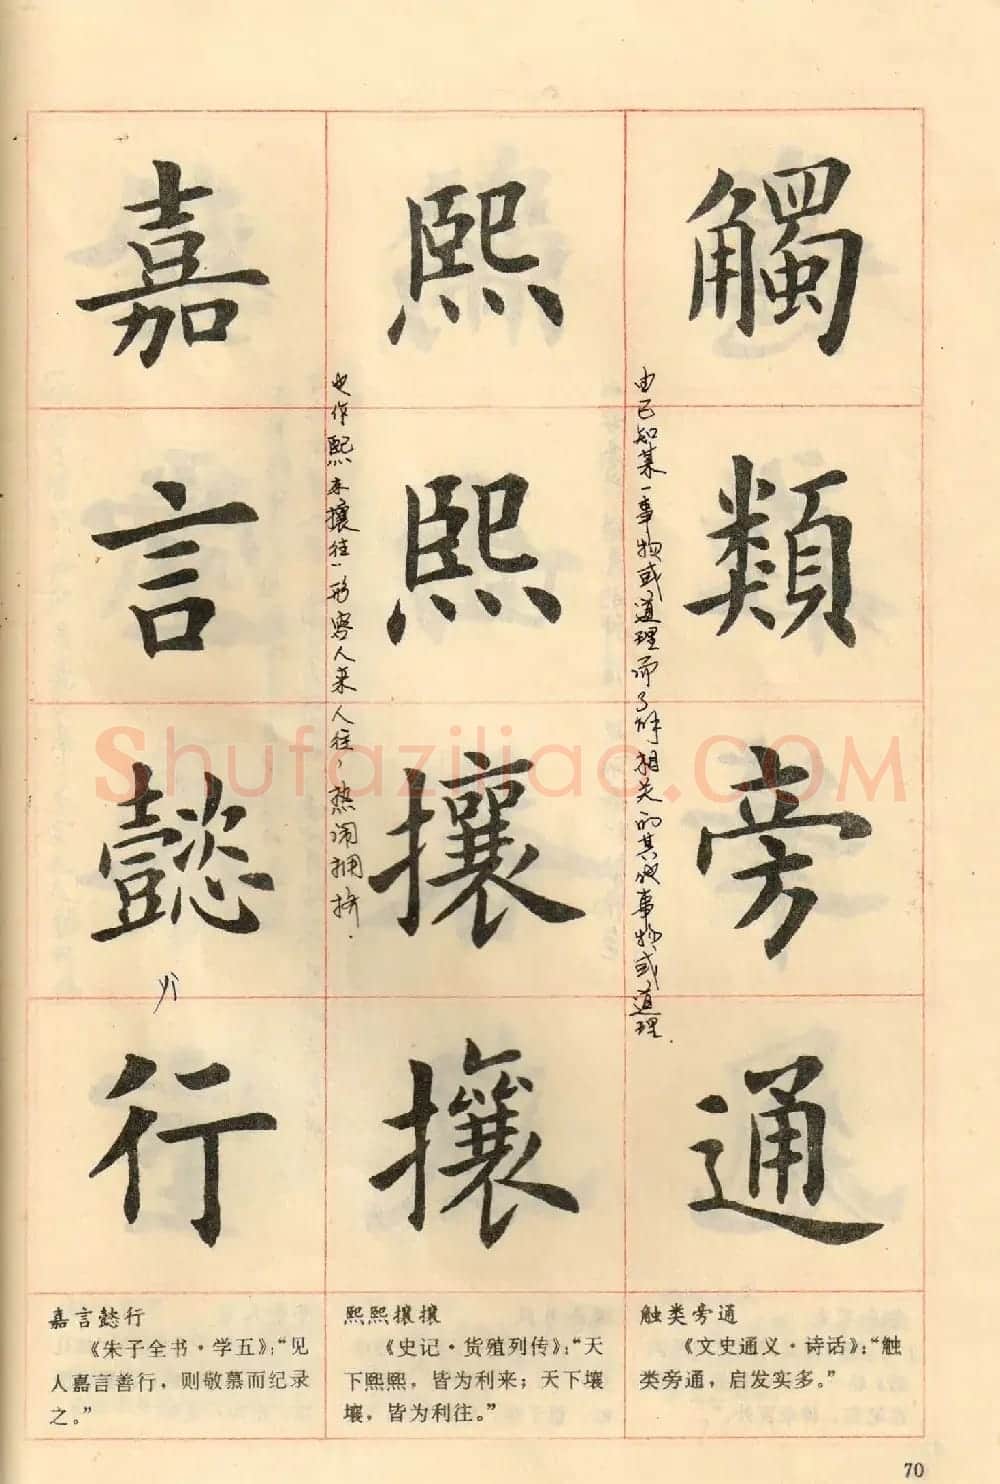 觸類旁通
由已知某一事物或道理而了解相关的其他事物或道理.
熙熙攘攘
也作熙来攘往,形容人来人往,热闹拥挤.
嘉言懿行
触类旁通
《文史通义·诗话》:“触
类旁通，启发实多。”
熙熙攘攘
《史记·货殖列传》:“天
下熙熙，皆为利来；天下壤
壤，皆为利往。”
嘉言懿行
《朱子全书·学五》:“见
人嘉言善行，则敬慕而纪录
之。”
70
Shufaziliao.COM